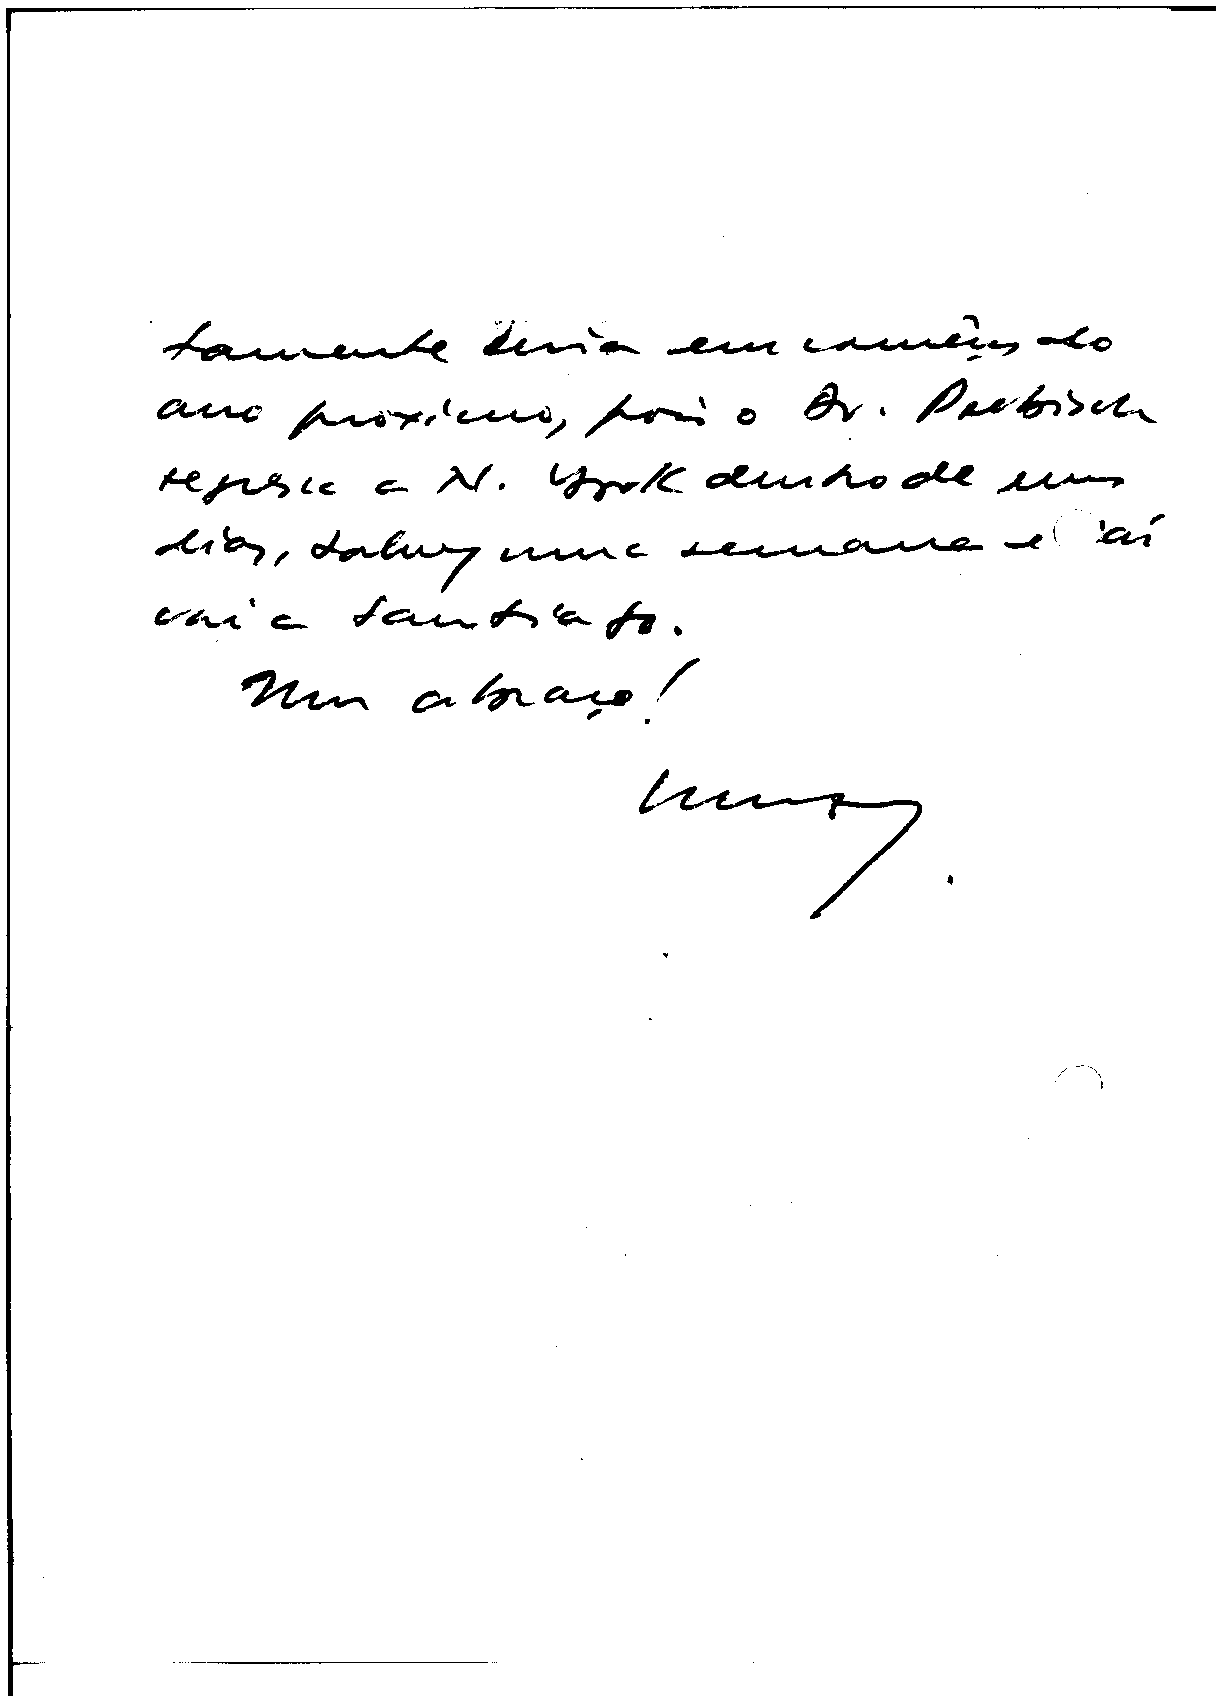 tamente seria em comêço do
ano próximo, pois o Dr. Prebisch
regressa a N. York dentro de uns
dias, talvez uma semana e aí
vai a Santiago.
Um abraço!